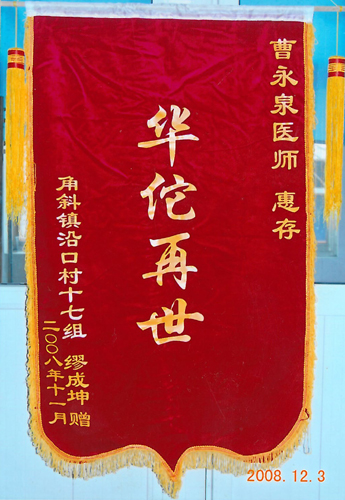 曹永泉医师 惠存
华佗再世
角斜镇沿口村十七组 缪成坤 赠
二〇〇八年十一月
2008.12.3